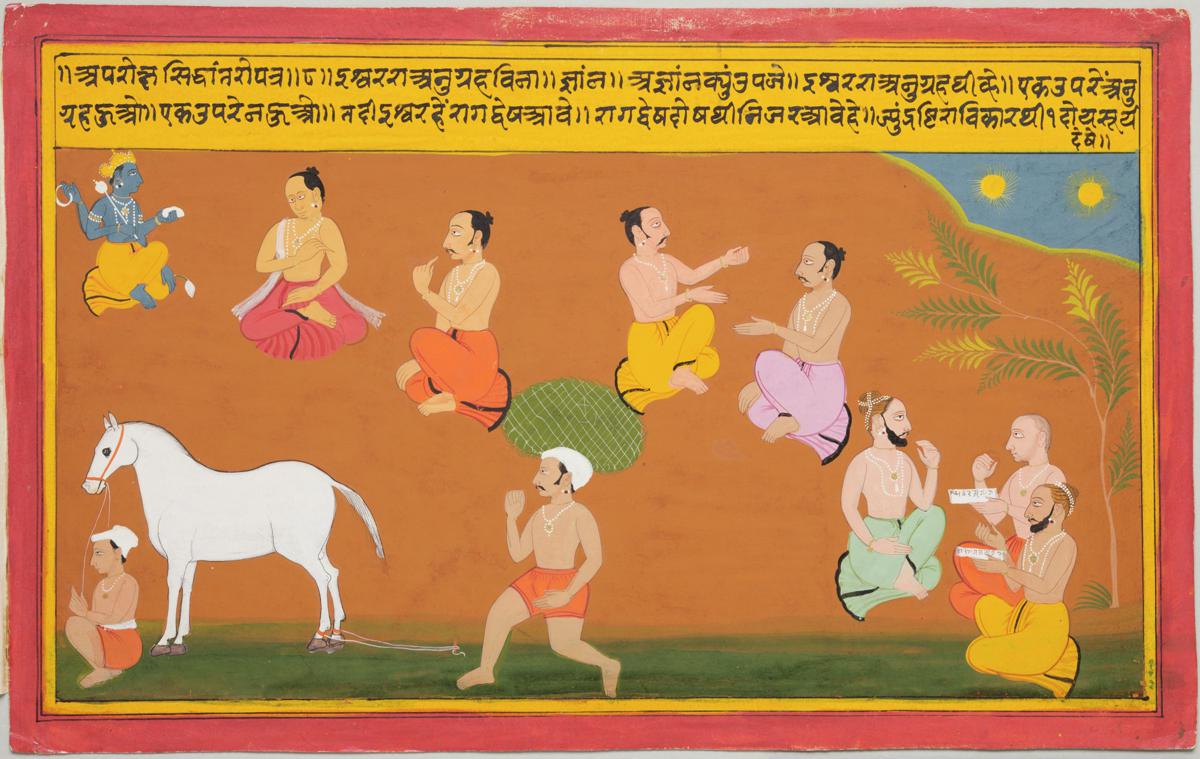 ॥अपरोक्ष सिद्धांतरोपत्र॥८॥इश्वररा अनुग्रह विना॥ज्ञांन॥अज्ञांनक्युं उपजे॥इश्वररा अनुग्रहथी व्हे॥एक उपरें अनु
ग्रह हुओ॥एक उपरे न हुओ॥तदी इश्वर हें राग द्वेष आवे॥राग द्वेष दोषथी निजर आवे हे॥ज्युं द्रष्टिरा विकारथी १ दोय सूर्य
दंषे॥